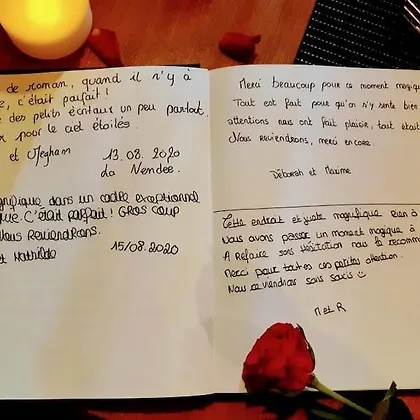 de roman, quand il n'y à
c'était parfait !
des petits écritaux un peu partout,
pour le ciel étoilés.
et Megham
13.08.2020
La Vendée.
magnifique dans un cadre exceptionnel
C'était parfait ! GROS COUP
Nous Reviendrons.
et Mathilde 15/08.2020
Merci beaucoup pour ce moment magique
Tout est fait pour qu'on s'y sente bien
attentions nous ont fait plaisir, tout était
Nous reviendrons, merci encore.
Déborah et Maxime
Cette endroit est juste magnifique Rien à
Nous avons passer un moment magique à
A Refaire sans Hésitation nous le recomm
Merci pour toutes ces petites attention.
Nous reviendrons sans soucis
M et R